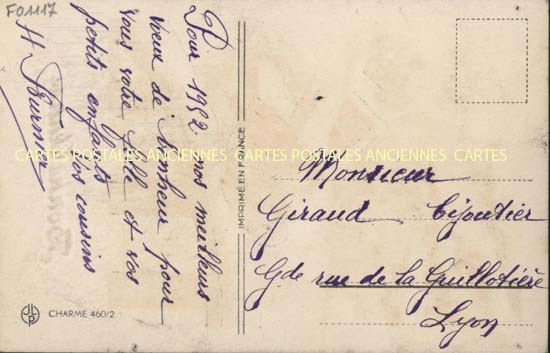 F01117
Pour 1952 nos meilleurs
voeux de bonheur pour
vous votre fille et vos
petits enfants
Vos cousins
H Fournier
IMPRIMÉ EN FRANCE
CARTES POSTALES ANCIENNES CARTES POSTALES ANCIENNES CARTES
Monsieur
Giraud Bijoutier
Gde rue de la Guillotière
Lyon
JLP
CHARME 460/2